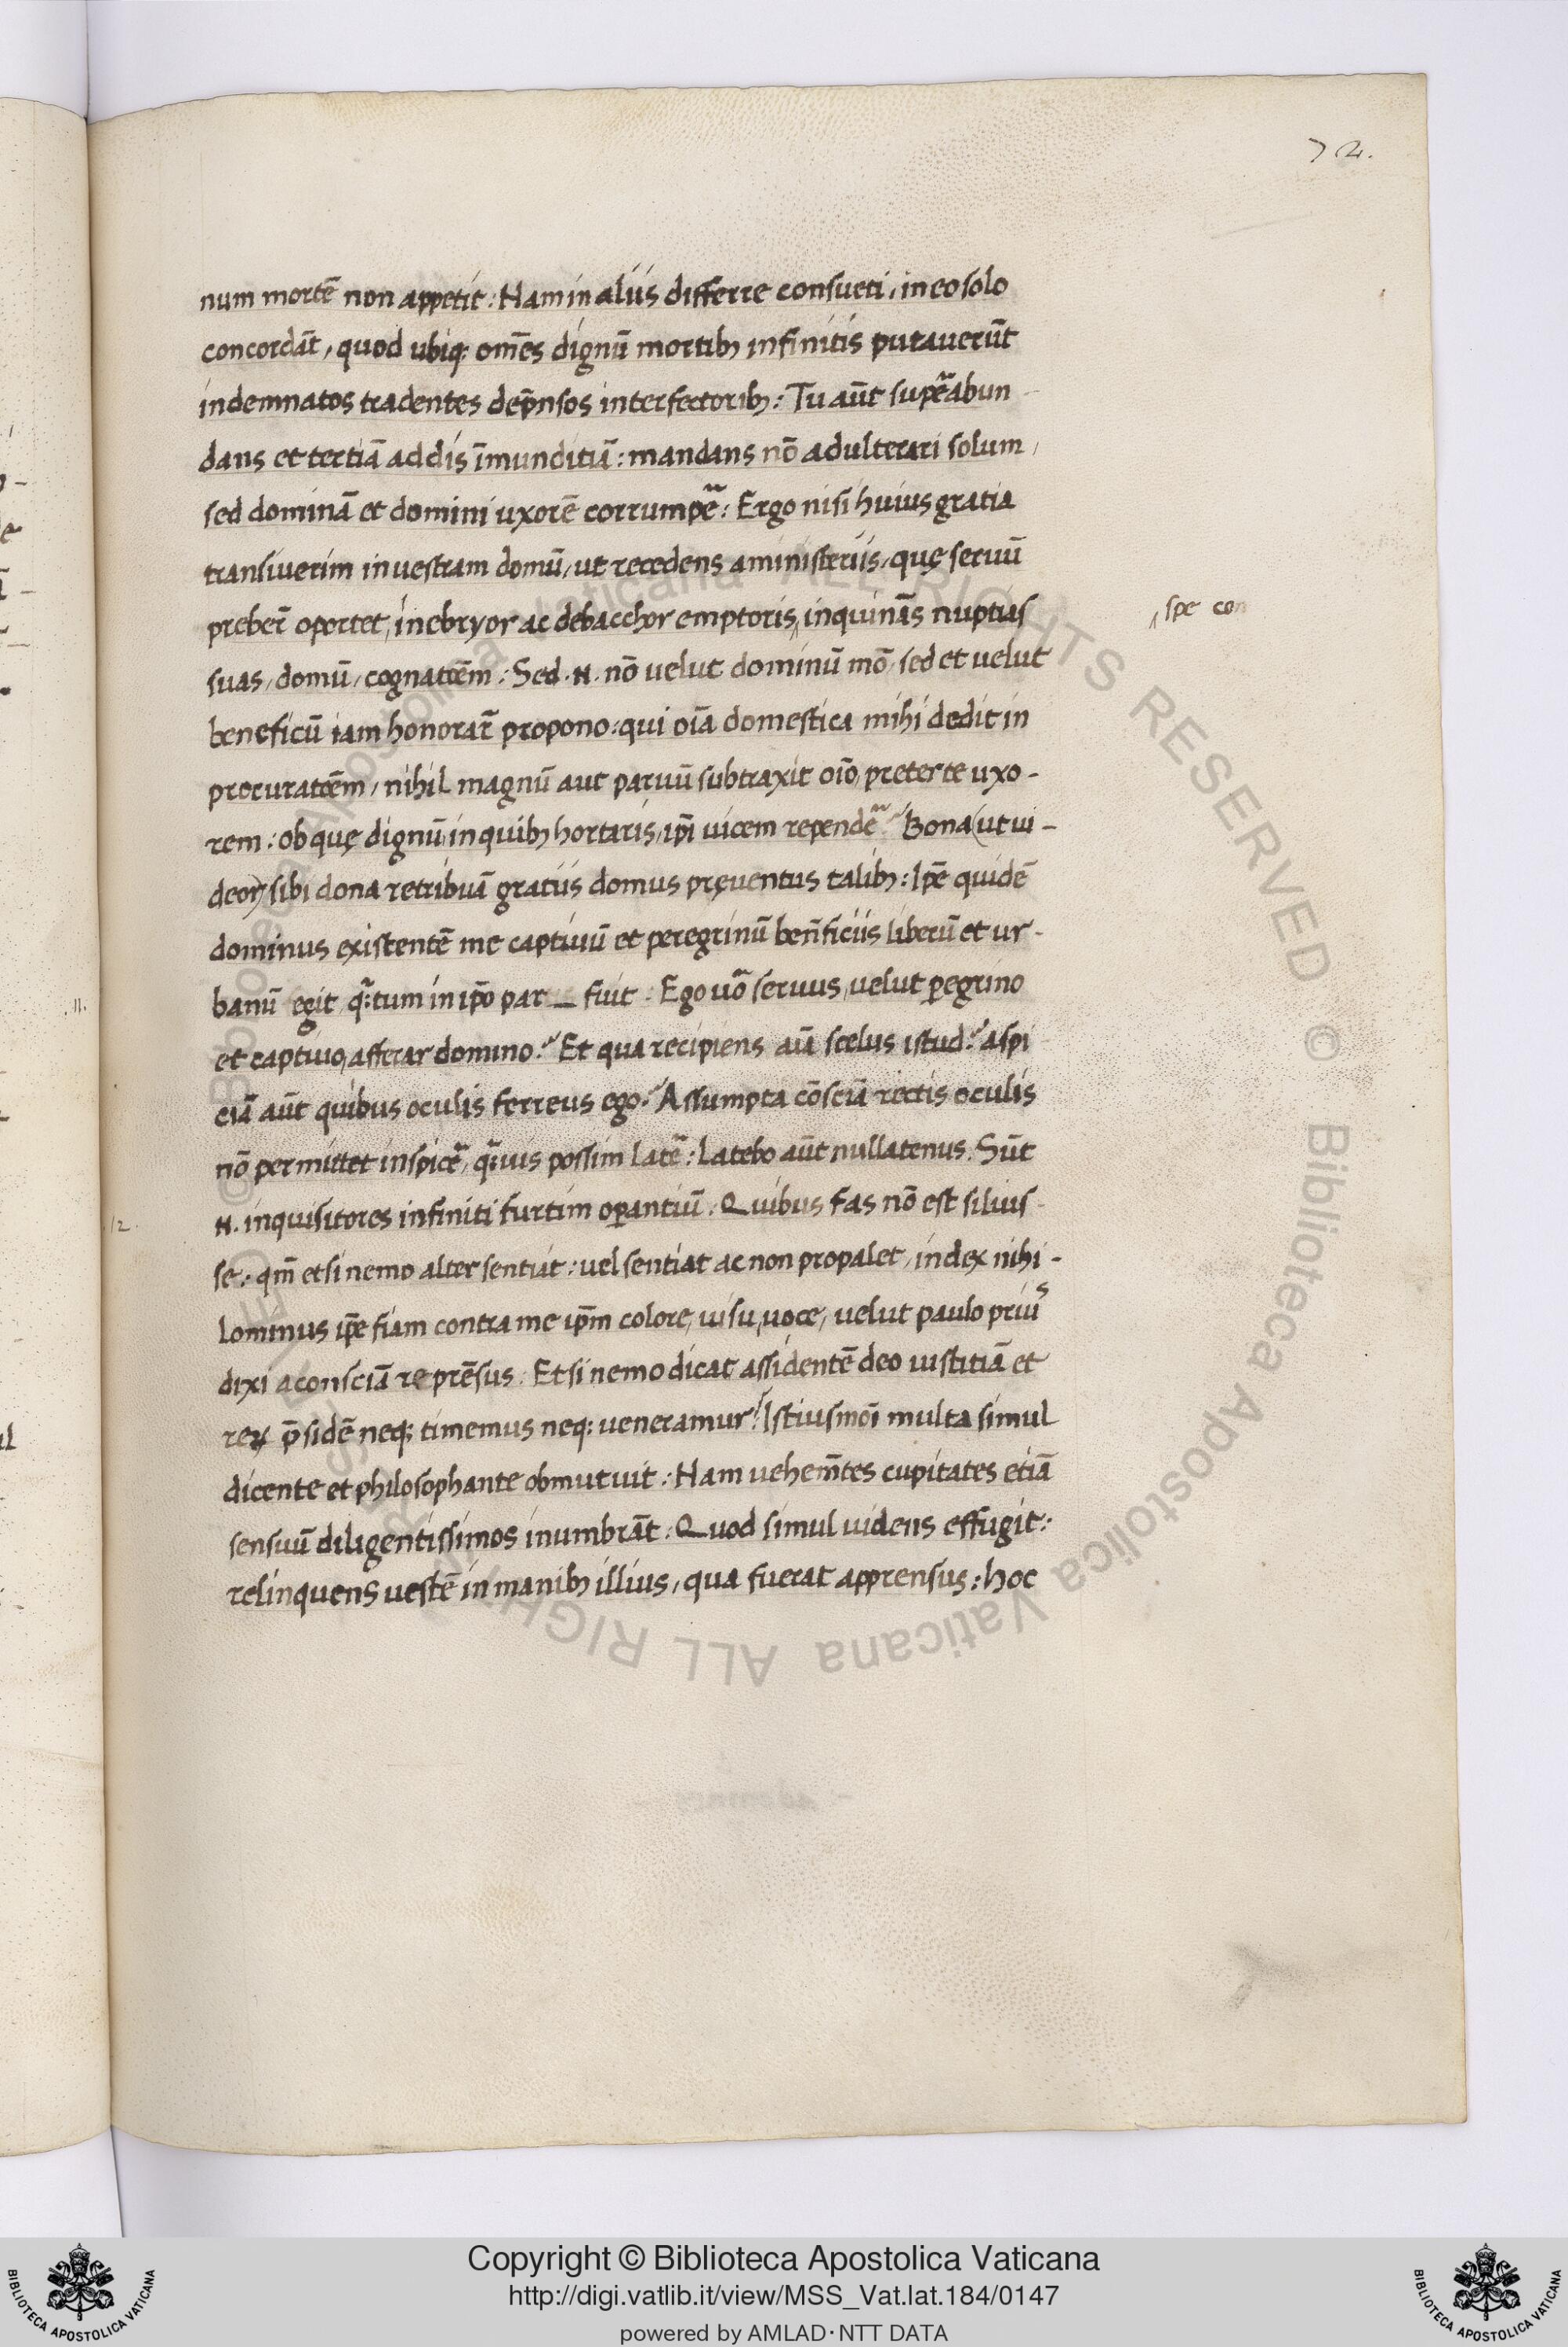 72.
num mortē non appetit: Nam in aliis differre consueti, in eo solo
concordāt, quod ubiq; om̄es dignū mortib; infinitis putauerūt
indemnatos tradentes dep̄nsos interfectorib;: Tu aūt supeabun
dans et tertiā addis īmunditiā: mandans nō adulterari solum,
sed dominā et domini uxorē corrumpe: Ergo nisi huius gratia
transiuerim in uestram domū, ut recedens a ministeriis, quę seruū
preber̄ oportet, inebryor ac debacchor emptoris, inquinās nuptias
spe con
suas, domū, cognatōem: Sed .N. nō uelut dominū mō, sed et uelut
beneficū iam honorar̄ propono: qui oīa domestica mihi dedit in
procuratōem, nihil magnū aut paruū subtraxit oīo, preter te uxo-
rem: ob quę dignū, in quib; hortaris, ip̄i uicem repende? Bona (ut ui-
deor) sibi dona retribuā gratiis domus pręuentus talib;: Ip̄e quidē
dominus existentē me captiuū et peregrinū ben̄ficiis liberū et ur-
banū egit, q:tum in ip̄o par _ fuit. Ego uō seruus, uelut p̱egrino
11.
et captiuo, afferar domino? Et qua recipiens aīa scelus istud? aspi
ciā aūt quibus oculis ferreus ego? Assumpta cōsciā rectis oculis
nō permittet inspice, q:uis possim late: Latebo aūt nullatenus. Sūt
.N. inquisitores infiniti furtim operantiū: Quibus fas nō est siluis-
12.
se: qm̄ etsi nemo alter sentiat: uel sentiat ac non propalet, index nihi-
lominus ip̄e fiam contra me ip̄m colore, uisu, uoce, uelut paulo prius
dixi a consciā reprēsus: Et si nemo dicat assidentē deo iustitiā et
p̄sidē neq; timemus neq; ueneramur? Istiusmōi multa simul
dicente et philosophante obmutuit: Nam uehem̄tes cupitates etiā
sensuū diligentissimos inumbrāt: Quod simul uidens effugit:
relinquens uestē in manib; illius, qua fuerat apprensus: hoc
Copyright © Biblioteca Apostolica Vaticana
http://digi.vatlib.it/view/MSS_Vat.lat.184/0147
powered by AMLAD·NTT DATA
BIBLIOTECA APOSTOLICA VATICANA
BIBLIOTECA APOSTOLICA VATICANA
© Biblioteca Apostolica Vaticana ALL RIGHTS RESERVED